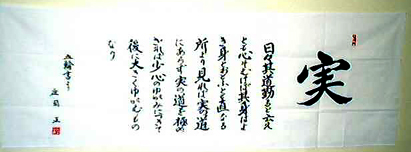 実
日々其道勤ると云え
とも心そむけば其身はよ
き道とおもふとも直なる
所より見れば実の道
にあらず実の道を極め
ざれば少心のゆがみにつきて
後に大きくゆがむもの
なり
五輪書より